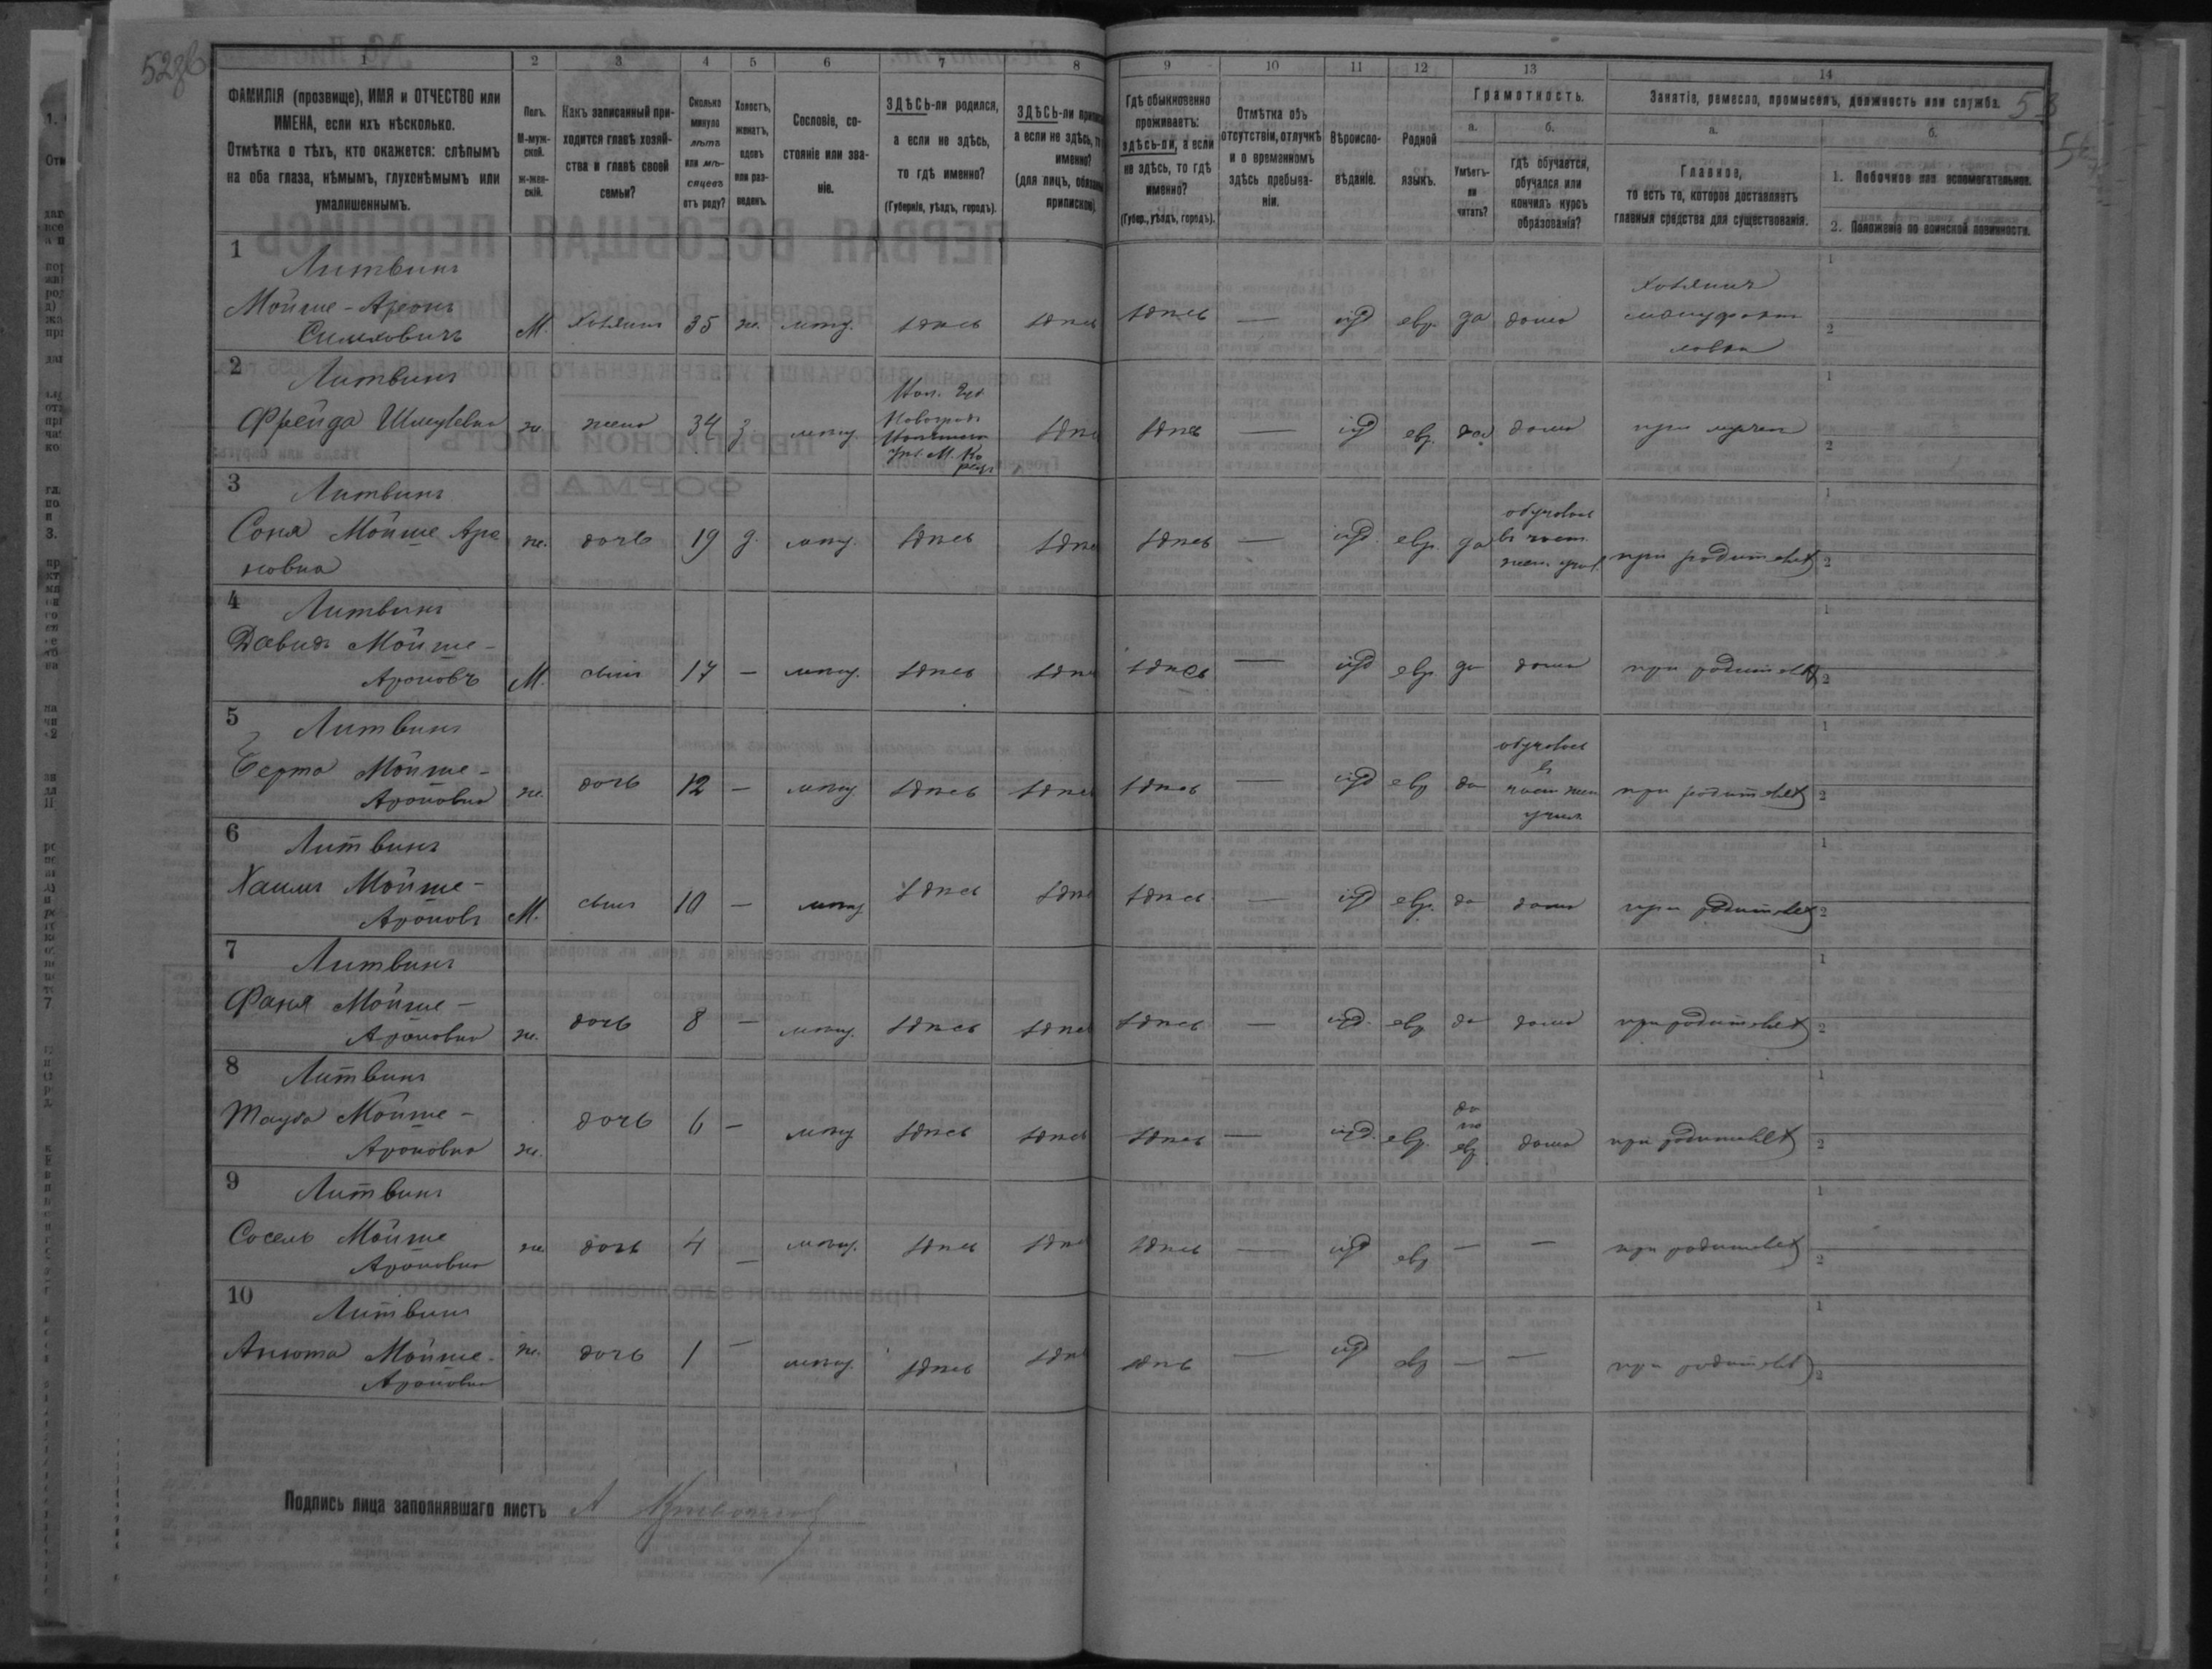 1 2 3 4 5 6 7 8 9 10 11 12 13 14
ФАМИЛІЯ (прозвище), ИМЯ и ОТЧЕСТВО или
ИМЕНА, если ихъ нѣсколько.
Отмѣтка о тѣхъ, кто окажется: слѣпымъ
на оба глаза, нѣмымъ, глухонѣмымъ или
умалишеннымъ.
Полъ.
М-муж-
ской.
ж-жен-
скій.
Какъ записанный при-
ходится главѣ хозяй-
ства и главѣ своей
семьи?
Сколько
минуло
лѣтъ
или мѣ-
сяцевъ
отъ роду?
Холостъ,
женатъ,
вдовъ
или раз-
веденъ.
Сословіе, со-
стояніе или зва-
ніе.
ЗДѢСЬ-ли родился,
а если не здѣсь,
то гдѣ именно?
(Губернія, уѣздъ, городъ).
ЗДѢСЬ-ли
а если не здѣсь,
именно?
(для лицъ,
Гдѣ обыкновенно
проживаетъ:
здѣсь-ли, а если
не здѣсь, то гдѣ
именно?
(Губер., уѣздъ, городъ).
Отмѣтка объ
отсутствіи, отлучкѣ
и о временномъ
здѣсь пребыва-
ніи.
Вѣроиспо-
вѣданіе.
Родной
языкъ.
Грамотность.
а.
Умѣетъ-
ли
читать?
б.
гдѣ обучается,
обучался или
кончилъ курсъ
образованія?
Занятіе, ремесло, промыселъ, должность или служба.
а.
Главное,
то есть то, которое доставляетъ
главныя средства для существованія.
б.
1. Побочное или вспомогательное.
2. Положеніе по воинской повинности.
1 Литвинъ
Мойше-Аронъ
Симховичъ М. Хозяинъ 35 ж. мѣщ. здѣсь здѣсь здѣсь — іуд евр. да дома Хозяинъ
мануфакт
лавки
2 Литвинъ
Фрейда Шмулевна ж. жена 34 з. мѣщ. Вол. Губ.
Новоград
здѣсь здѣсь — іуд евр. да дома при мужѣ
3 Литвинъ
Соня Мойше Аро
новна ж. дочь 19 д. мѣщ. здѣсь здѣсь здѣсь — іуд. евр. да обучалась
въ част.
жен. учил. при родителях
4 Литвинъ
Давидъ Мойше-
Ароновъ М. сынъ 17 — мѣщ. здѣсь здѣсь здѣсь — іуд евр да дома при родителях
5 Литвинъ
Берта Мойше-
Ароновна ж. дочь 12 — мѣщ здѣсь здѣсь здѣсь — іуд евр да обучалась
въ
част жен
учил при родителях
6 Литвинъ
Хаимъ Мойше-
Ароновъ М. сынъ 10 — мѣщ здѣсь здѣсь здѣсь — іуд евр. да дома при родителях
7 Литвинъ
Фаня Мойше-
Ароновна ж. дочь 8 — мѣщ. здѣсь здѣсь здѣсь — іуд. евр да дома при родителях
8 Литвинъ
Тауба Мойше-
Ароновна ж. дочь 6 — мѣщ здѣсь здѣсь здѣсь — іуд. евр. да
по
евр дома при родителях
9 Литвинъ
Сосель Мойше
Ароновна ж дочь 4 — мѣщ. здѣсь здѣсь здѣсь — іуд евр — — при родителях
10 Литвинъ
Анюта Мойше-
Ароновна ж. дочь 1 — мѣщ. здѣсь здѣсь здѣсь — іуд евр — — при родителях
Подпись лица заполнявшаго листъ А